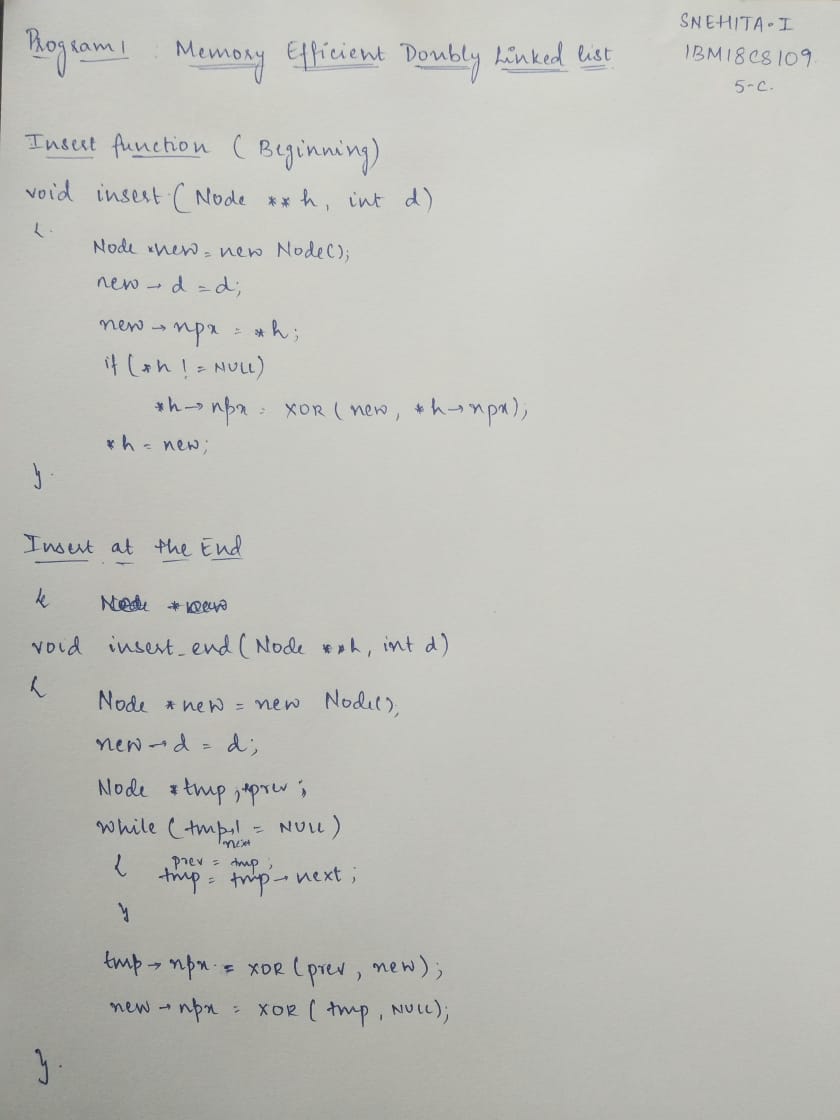 Program 1 : Memory Efficient Doubly Linked list
SNEHITA.I
1BM18CS109.
5-C.
Insert function ( Beginning)
void insert ( Node ** h, int d)
{
Node *new = new Node();
new → d = d;
new → npx = *h;
if (*h != NULL)
*h → npx = XOR ( new, *h → npx);
*h = new;
}.
Insert at the End
{
void insert_end ( Node **h, int d)
{
Node *new = new Node();
new → d = d;
Node *tmp, *prev ;
while ( tmp != NULL)
next
{ prev = tmp ;
tmp = tmp → next ;
}
tmp → npx = XOR ( prev , new ) ;
new → npx = XOR ( tmp , NULL);
}.